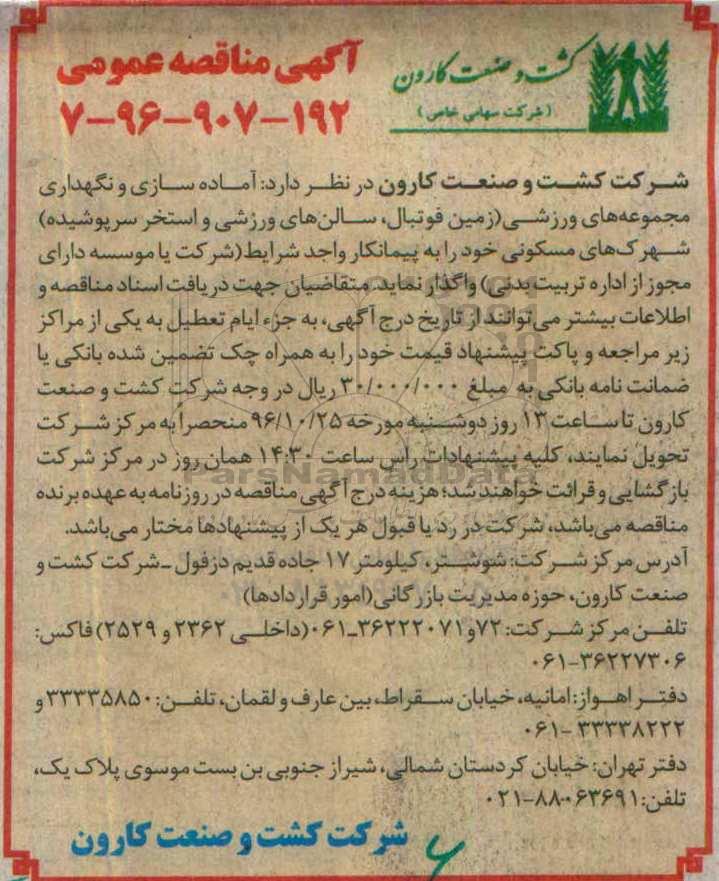 کشت و صنعت کارون
(شرکت سهامی خاص)
آگهی مناقصه عمومی
۷-۹۶-۹۰۷-۱۹۲
شرکت کشت و صنعت کارون در نظر دارد: آماده سازی و نگهداری
مجموعه‌های ورزشی(زمین فوتبال، سالن‌های ورزشی و استخر سرپوشیده)
شهرک‌های مسکونی خود را به پیمانکار واجد شرایط(شرکت یا موسسه دارای
مجوز از اداره تربیت بدنی) واگذار نماید. متقاضیان جهت دریافت اسناد مناقصه و
اطلاعات بیشتر می‌توانند از تاریخ درج آگهی، به جزء ایام تعطیل به یکی از مراکز
زیر مراجعه و پاکت پیشنهاد قیمت خود را به همراه چک تضمین شده بانکی یا
ضمانت نامه بانکی به مبلغ ۳۰/۰۰۰/۰۰۰ ریال در وجه شرکت کشت و صنعت
کارون تا ساعت ۱۳ روز دوشنبه مورخه ۹۶/۱۰/۲۵ منحصراً به مرکز شرکت
تحویل نمایند، کلیه پیشنهادات راس ساعت ۱۴:۳۰ همان روز در مرکز شرکت
بازگشایی و قرائت خواهند شد؛ هزینه درج آگهی مناقصه در روزنامه به عهده برنده
مناقصه می‌باشد، شرکت در رد یا قبول هر یک از پیشنهادها مختار می‌باشد.
آدرس مرکز شرکت: شوشتر، کیلومتر ۱۷ جاده قدیم دزفول - شرکت کشت و
صنعت کارون، حوزه مدیریت بازرگانی(امور قراردادها)
تلفن مرکز شرکت: ۷۲ و ۳۶۲۲۲۰۷۱-۰۶۱(داخلی ۲۳۶۲ و ۲۵۲۹) فاکس:
۰۶۱-۳۶۲۲۷۳۰۶
دفتر اهواز: امانیه، خیابان سقراط، بین عارف و لقمان، تلفن: ۳۳۳۳۵۸۵۰ و
۰۶۱-۳۳۳۳۸۲۲۲
دفتر تهران: خیابان کردستان شمالی، شیراز جنوبی بن بست موسوی پلاک یک،
تلفن: ۰۲۱-۸۸۰۶۳۶۹۱
شرکت کشت و صنعت کارون
ParsNamadData